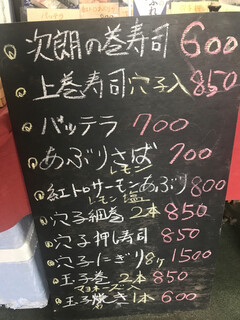 次朗の巻寿司 600
上巻寿司穴子入 850
バッテラ 700
あぶりさば 700
レモン
紅トロサーモンあぶり 800
レモン 塩
穴子細巻 2本 850
穴子押し寿司 850
穴子にぎり8ケ 1500
玉子巻 2本 850
マヨネーズ
玉子焼き1本 600